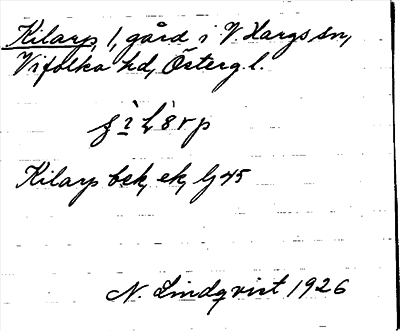 Kilarp, 1, gård i V Hargs sn,
Vifolka hd, Österg.l.
Kilarp bek, ek, lj 45
N. Lindqvist 1926